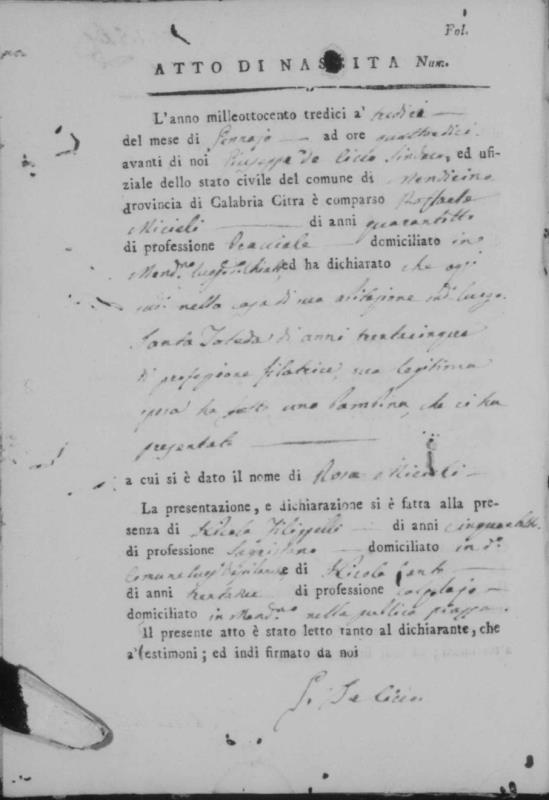 Fol.
ATTO DI NASCITA Num.
L'anno milleottocento tredici a' tredici
del mese di Gennajo ad ore quattordici
avanti di noi Giuseppe de Cicco Sindaco, ed ufi-
ziale dello stato civile del comune di Mendicino
provincia di Calabria Citra è comparso Raffaele
Micieli di anni quarantotto
di professione domiciliato in
Mend.no ed ha dichiarato che oggi
nella casa di sua abitazione in d.o luogo
Santa di anni trentacinque
di professione filatrice, sua legitima
sposa ha fatto una bambina, che ci ha
presentata
a cui si è dato il nome di Rosa Micieli
La presentazione, e dichiarazione si è fatta alla pre-
senza di Nicola Filippelli di anni
di professione domiciliato in d.o
Comune e di Nicola
di anni trentatre di professione
domiciliato in Mend.no nella publica piazza.
Il presente atto è stato letto tanto al dichiarante, che
a' testimoni; ed indi firmato da noi
G. De Cicco